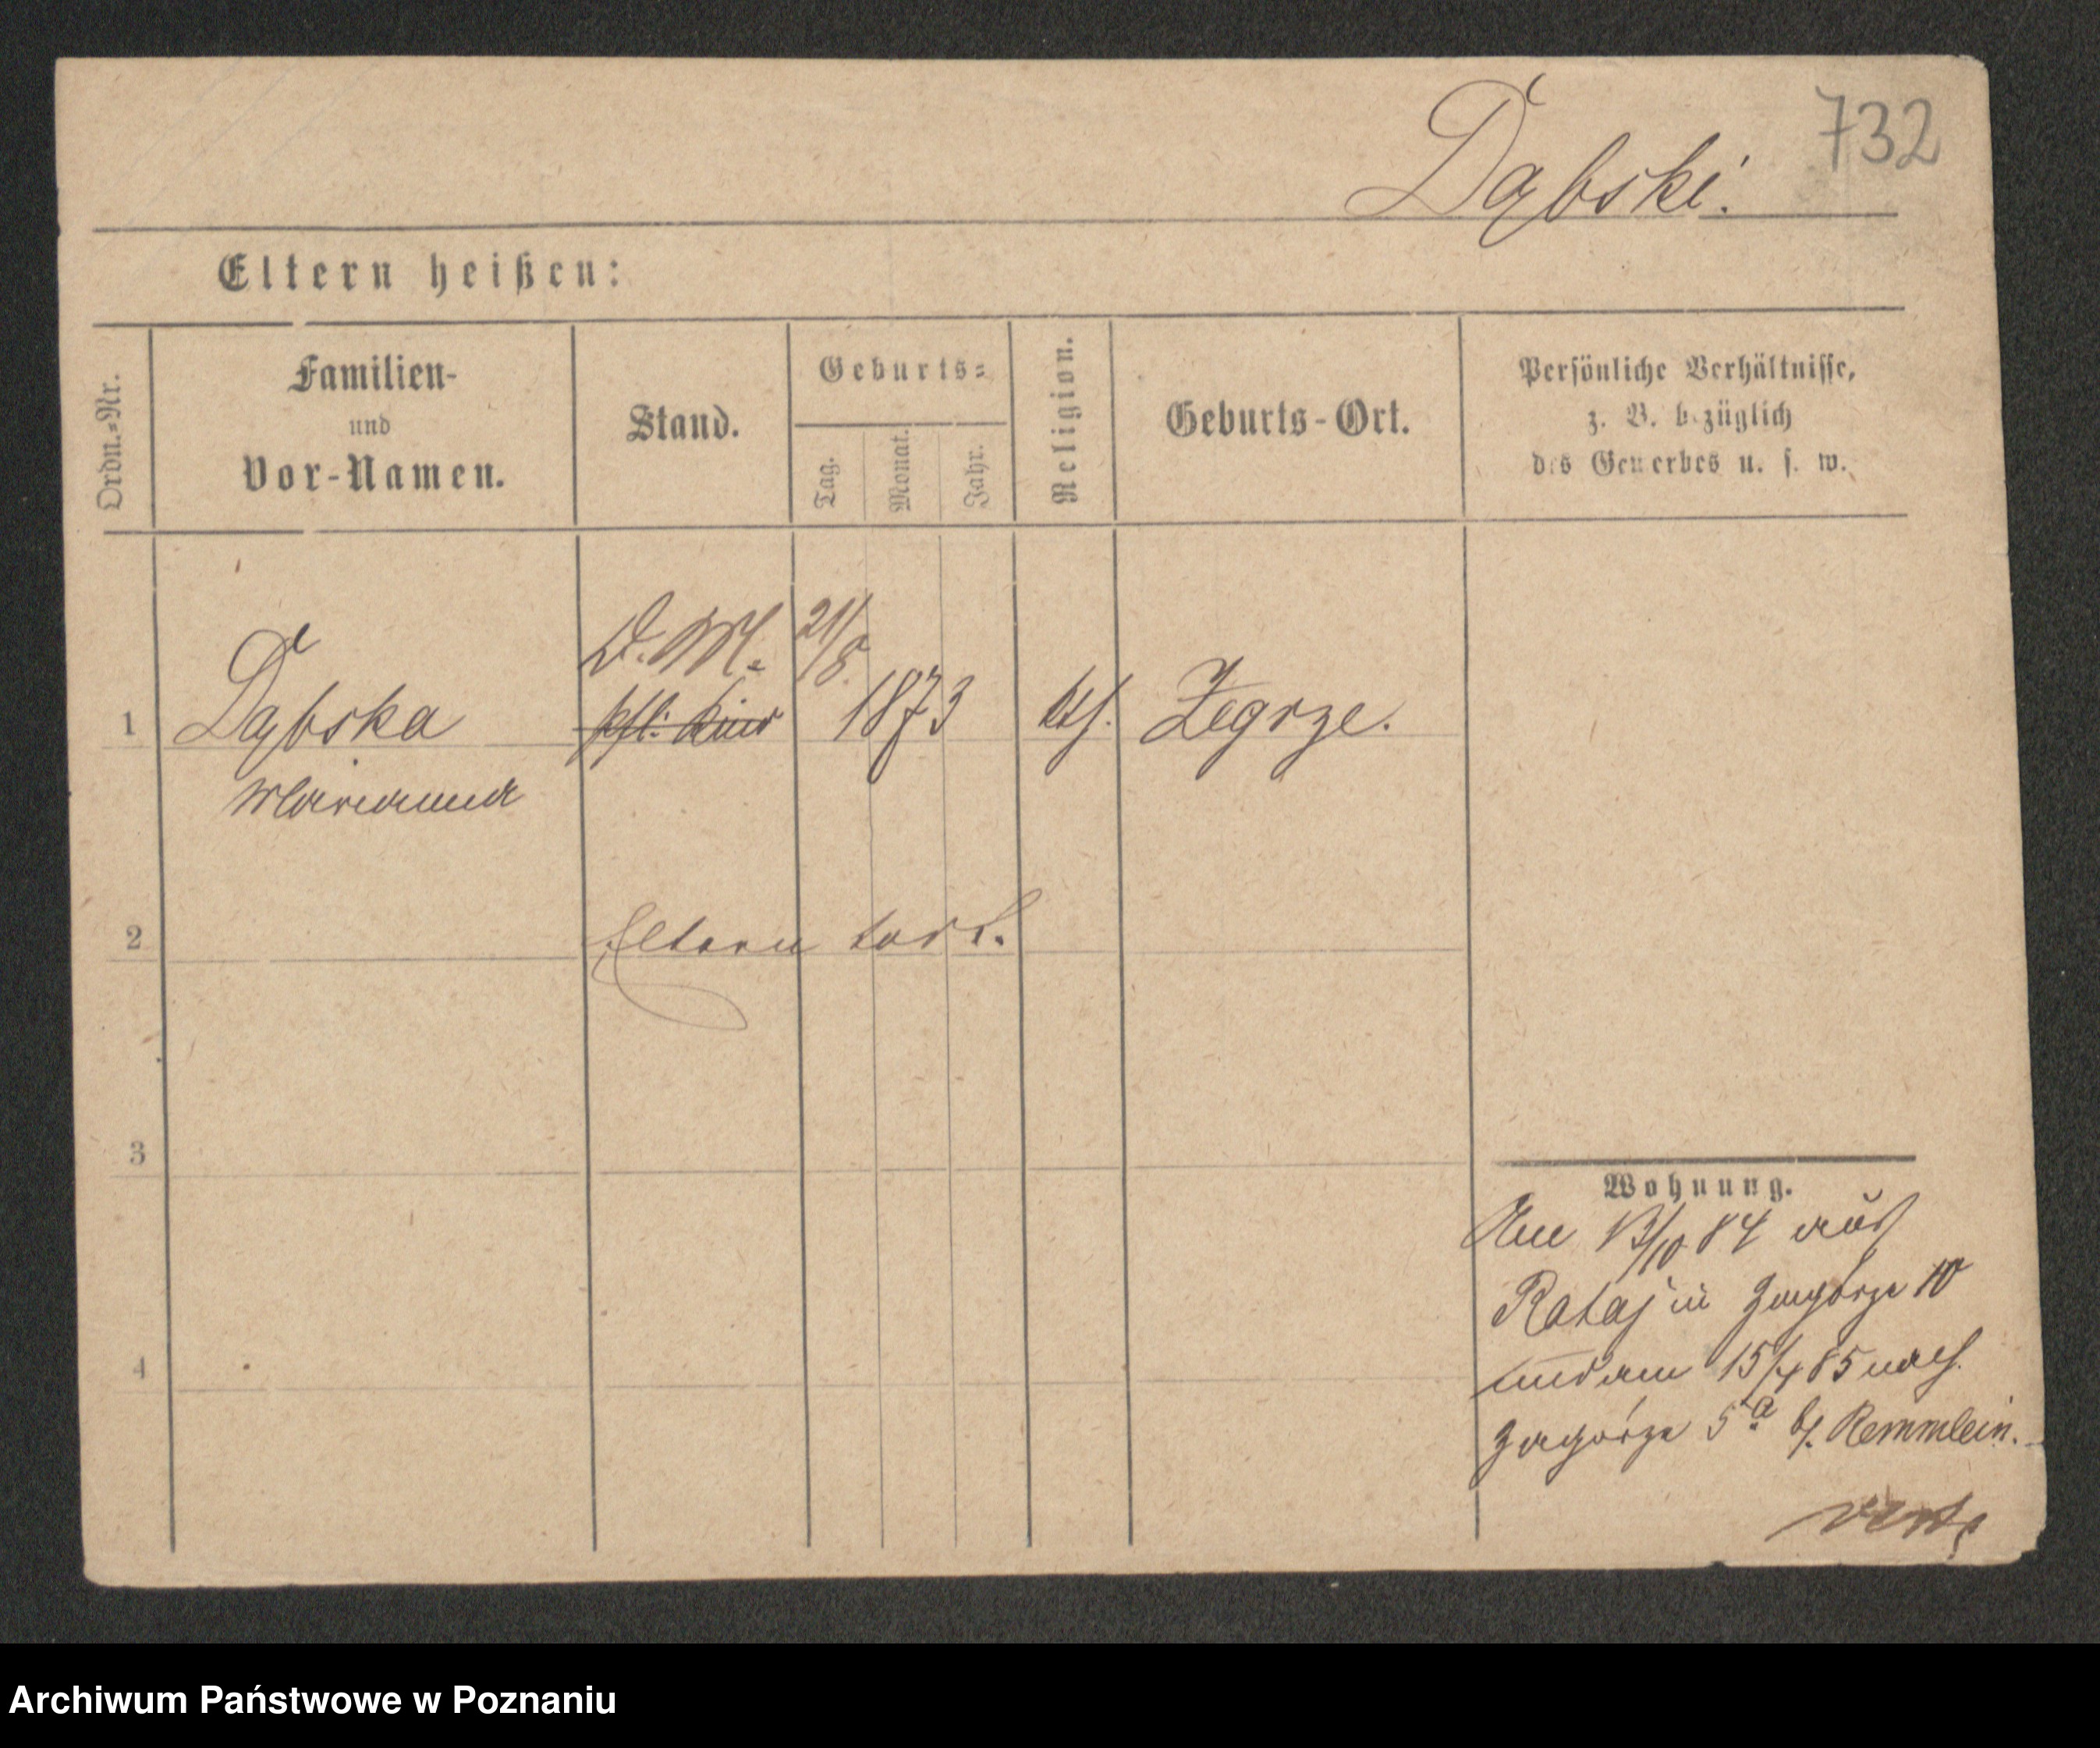 732
Dąbski.
Eltern heißen:
Ordn.=Nr.
Familien-
und
Vor-Namen.
Stand.
Geburts=
Tag.
Monat.
Jahr.
Religion.
Geburts-Ort.
Persönliche Verhältnisse,
z. B. bezüglich
des Gewerbes u. s. w.
D. M. 21/8.
1 Dąbska pfl. Kind 1873 kth. Zegrze.
Marianna
2 Eltern todt.
3
4
Wohnung.
Am 13/10 84 aus
Rataj in Zagórze 10
und am 15/4 85 nach
Zagórze 5a b/. Remmlein.
verte
Archiwum Państwowe w Poznaniu